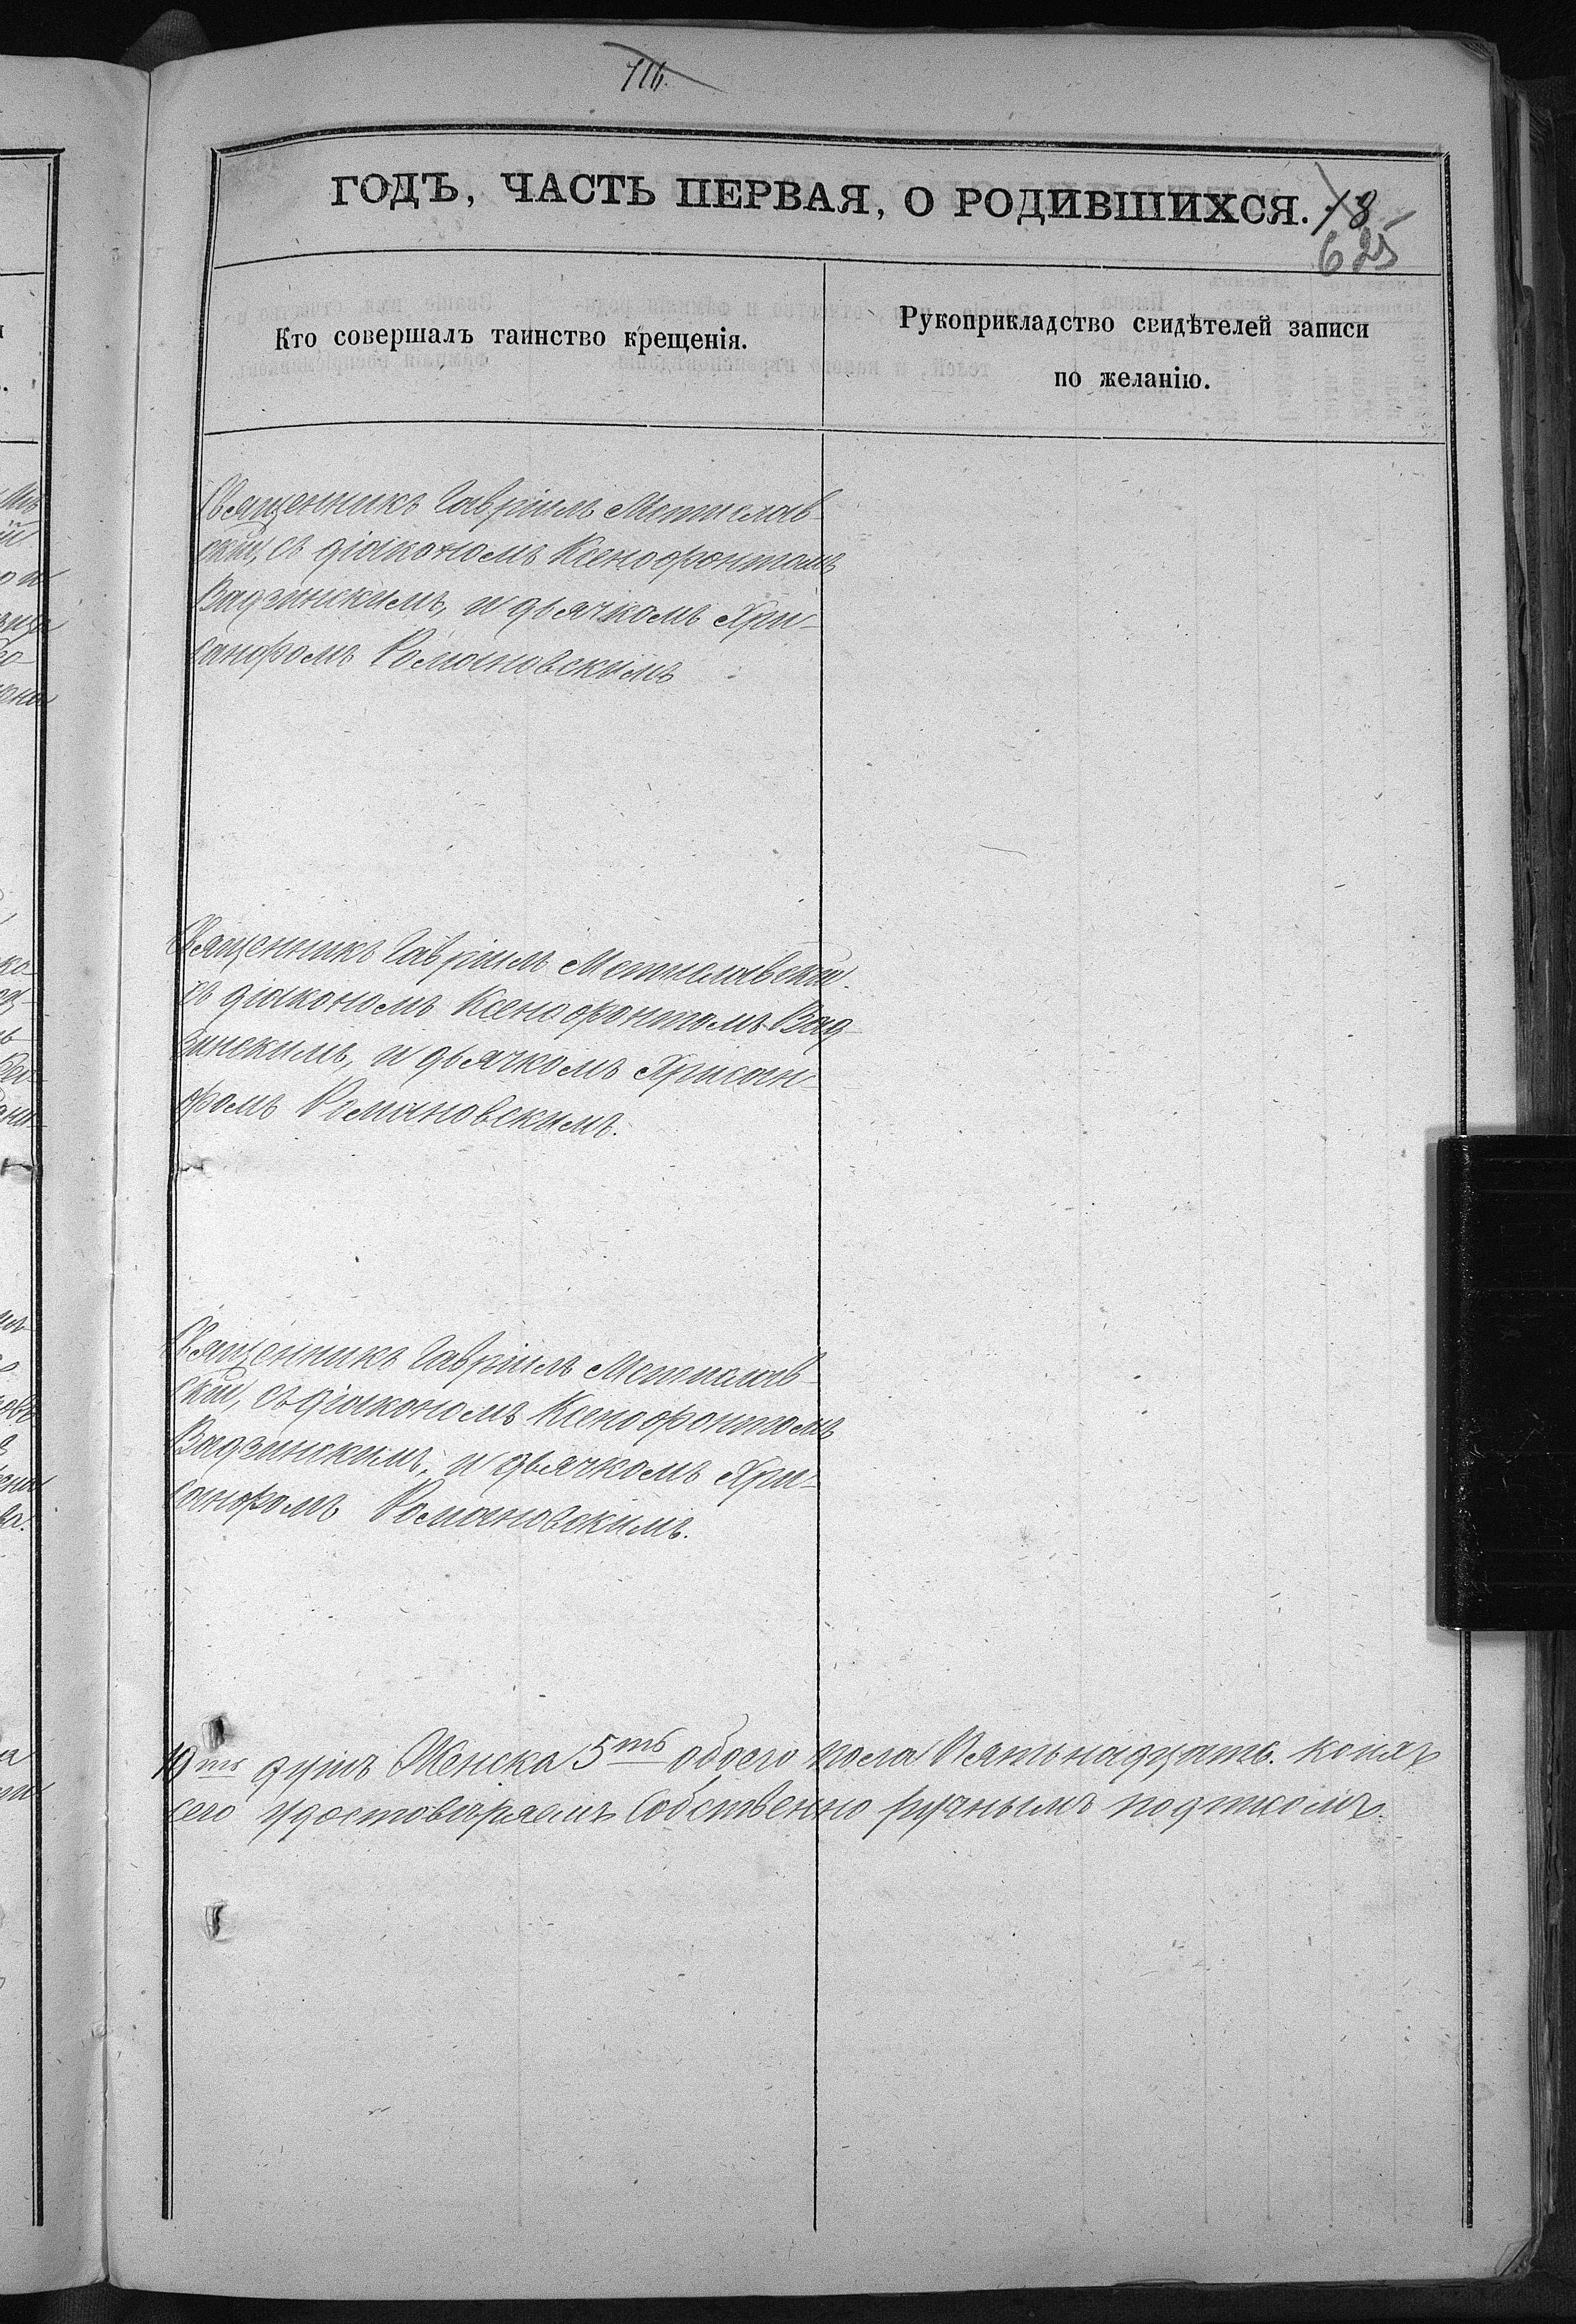 716.
ГОДЪ, ЧАСТЬ ПЕРВАЯ, О РОДИВШИХСЯ.
18
625
Кто совершалъ таинство крещенія.
Рукоприкладство свидѣтелей записи
по желанію.
Священникъ Гавріилъ Мстислав-
скій, съ діакономъ Ксенофонтомъ
Вадзинскимъ, и дьячкомъ Хри-
санфомъ Романовскимъ
Священникъ Гавріилъ Мстиславскій.
съ діакономъ Ксенофонтомъ Вад
зинскимъ, и дьячкомъ Хрисан-
фомъ Романовскимъ.
Священникъ Гавріилъ Мстислав-
скій, съ діакономъ Ксенофонтомъ
Вадзинскимъ, и дьячкомъ Хри-
санфомъ Романовскимъ.
10ть душъ Женска 5ть обоего пола Пятьнадцать.
сего удостовѣряемъ Собственно ручнымъ